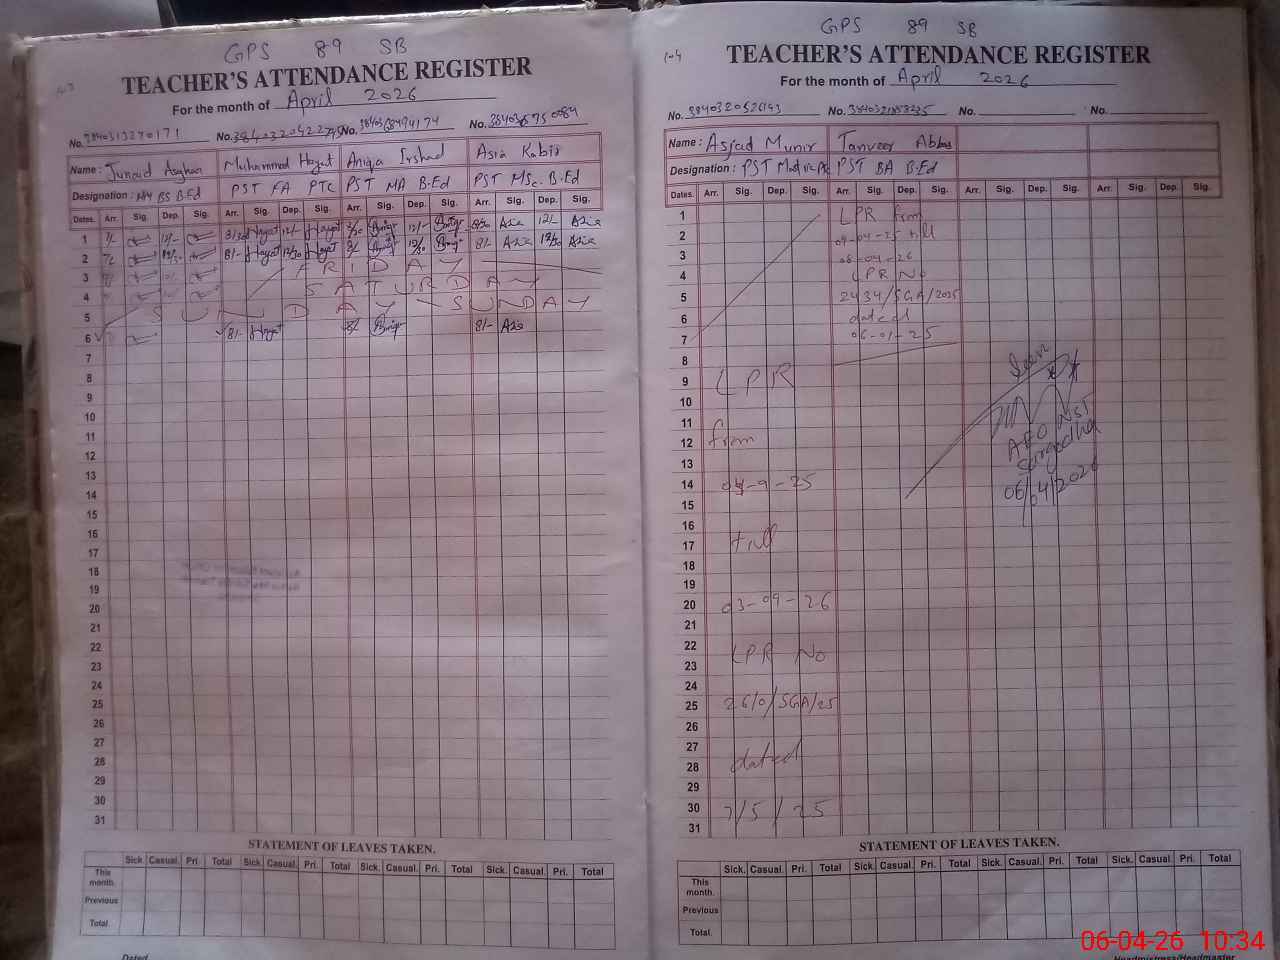 GPS 89 SB
TEACHER'S ATTENDANCE REGISTER
For the month of April 2026
No. 3840313270171 No. 3840320422745 No. No.
Name: Junaid Asghar Muhammad Hayat Aniqa Irshad Asia Kabir
Designation: BS B.Ed PST FA PTC PST MA B.Ed PST MSc. B.Ed
Dates. Arr. Sig. Dep. Sig. Arr. Sig. Dep. Sig. Arr. Sig. Dep. Sig. Arr. Sig. Dep. Sig.
1 12/- Hayat 12/- Hayat 12/- Asia 12/- Asia
2 12/30 8/- Hayat 12/30 Hayat 8/- 12/30 8/- Asia 12/30 Asia
3 FRIDAY
4 SATURDAY
5 SUNDAY SUNDAY
6 8/- Hayat 8/- 8/- Asia
7
8
9
10
11
12
13
14
15
16
17
18
19
20
21
22
23
24
25
26
27
28
29
30
31
STATEMENT OF LEAVES TAKEN.
Sick. Casual. Pri. Total Sick. Casual. Pri. Total Sick. Casual. Pri. Total Sick. Casual. Pri. Total
This month.
Previous
Total.
Dated
104
GPS 89 SB
TEACHER'S ATTENDANCE REGISTER
For the month of April 2026
No. 3840320526143 No. No. No.
Name: Asjad Munir Tanveer Abbas
Designation: PST PST BA B.Ed
Dates. Arr. Sig. Dep. Sig. Arr. Sig. Dep. Sig. Arr. Sig. Dep. Sig. Arr. Sig. Dep. Sig.
1 LPR from
2 09-04-25 till
3 08-04-26
4 LPR No
5 2434/SGA/2025
6 dated
7 06-01-25
8
9 LPR
10
11
12 from
13
14 04-9-25
15
16
17 till
18
19
20 03-09-26
21
22
23 LPR No
24
25 2610/SGA/25
26
27
28 dated
29
30 7/5/25
31
Seen
AEO NST
Sargodha
06/04/2026
STATEMENT OF LEAVES TAKEN.
Sick. Casual. Pri. Total Sick. Casual. Pri. Total Sick. Casual. Pri. Total Sick. Casual. Pri. Total
This month.
Previous
Total.
Headmistress/Headmaster
06-04-26 10:34